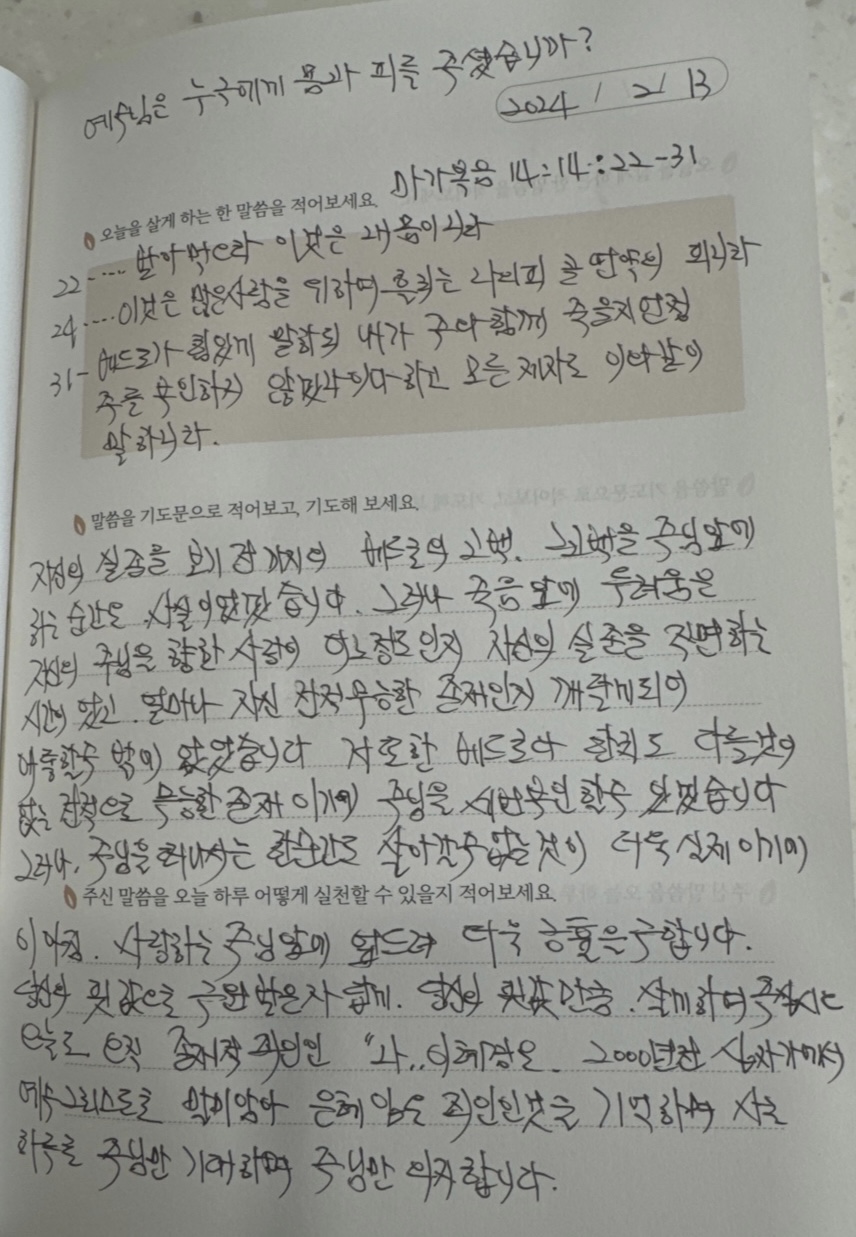 예수님은 누구에게 몸과 피를 주셨습니까?
2024 / 2 / 13
마가복음 14:14:22-31
오늘을 살게 하는 한 말씀을 적어보세요.
22-.... 받아 먹으라 이것은 내 몸이니라
24....이것은 많은사람을 위하여 흘리는 나의피 곧 언약의 피니라
31- 베드로가 힘있게 말하되 내가 주와 함께 죽을지언정
주를 부인하지 않겠나이다 하고 모든 제자도 이와같이
말하니라.
말씀을 기도문으로 적어보고, 기도해 보세요.
자신의 실존을 보기 전까지의 베드로의 고백. 그고백을 주님앞에
하는 순간도 사실이었겠습니다. 그러나 죽음 앞에 두려움은
자신의 주님을 향한 사랑이 어느정도인지 자신의 실존을 직면하는
시간이 었고. 얼마나 자신 전적무능한 존재인지 깨닫게되어
애통할수 밖에 없었습니다 저또한 베드로와 한치도 다를것이
없는 전적으로 무능한 존재 이기에 주님을 세번부인할수 있겠습니다
그러나, 주님을 떠나서는 한순간도 살아갈수없는것이 더욱 실제 이기에
주신 말씀을 오늘 하루 어떻게 실천할 수 있을지 적어보세요.
이 아침. 사랑하는 주님앞에 엎드려 더욱 긍휼을 구합니다.
당신의 핏값으로 구원 받은자 답게. 당신의 핏값만큼. 살게하여주십시오
오늘도 오직 존재적 죄인인 "나.. 이혜경은. 2000년전 십자가에서
예수그리스도로 말미암아 은혜 입은 죄인인것을 기억하며 사는
하루를 주님만 기대하며 주님만 의지합니다.